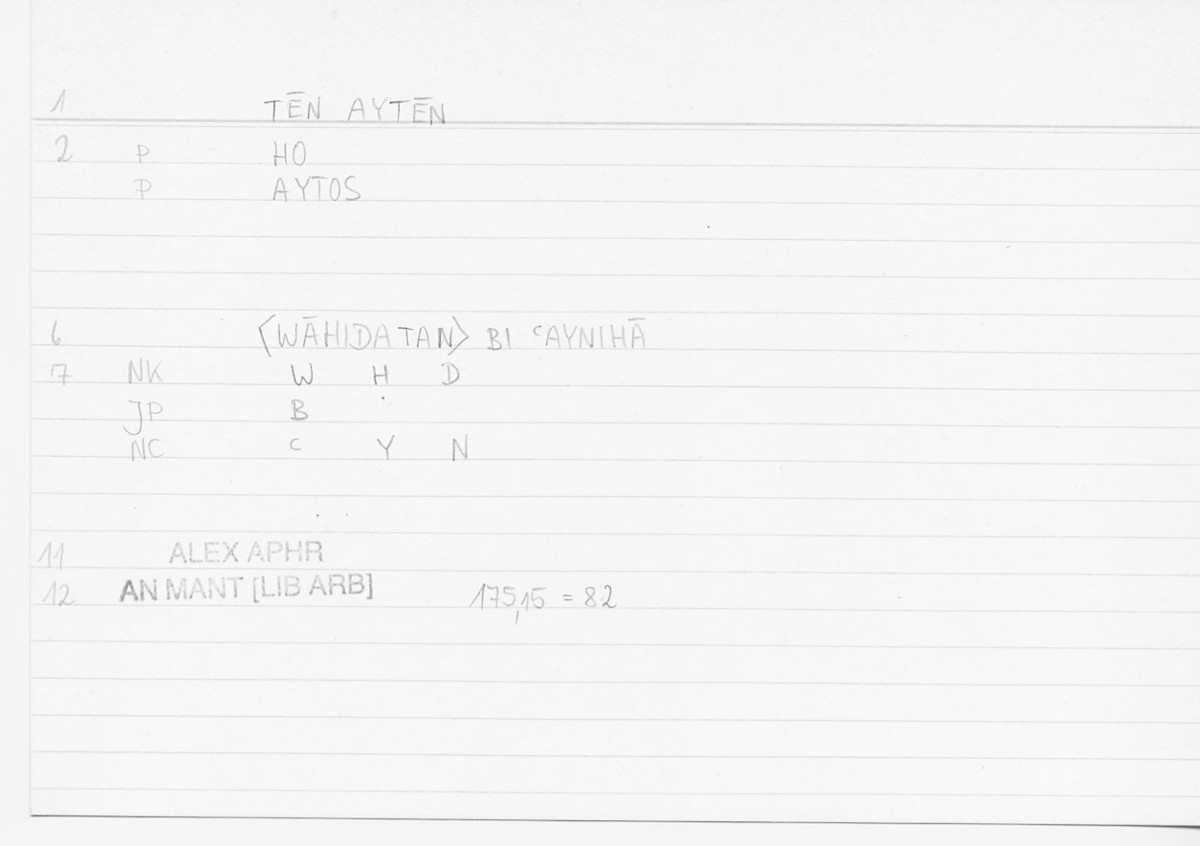 1 TĒN AYTĒN
2 P HO
P AYTOS
6 〈WĀHIDATAN〉 BI ʿAYNIHĀ
7 NK W Ḥ D
JP B
NC ʿ Y N
11 ALEX APHR
12 AN MANT [LIB ARB] 175,15 = 8.2